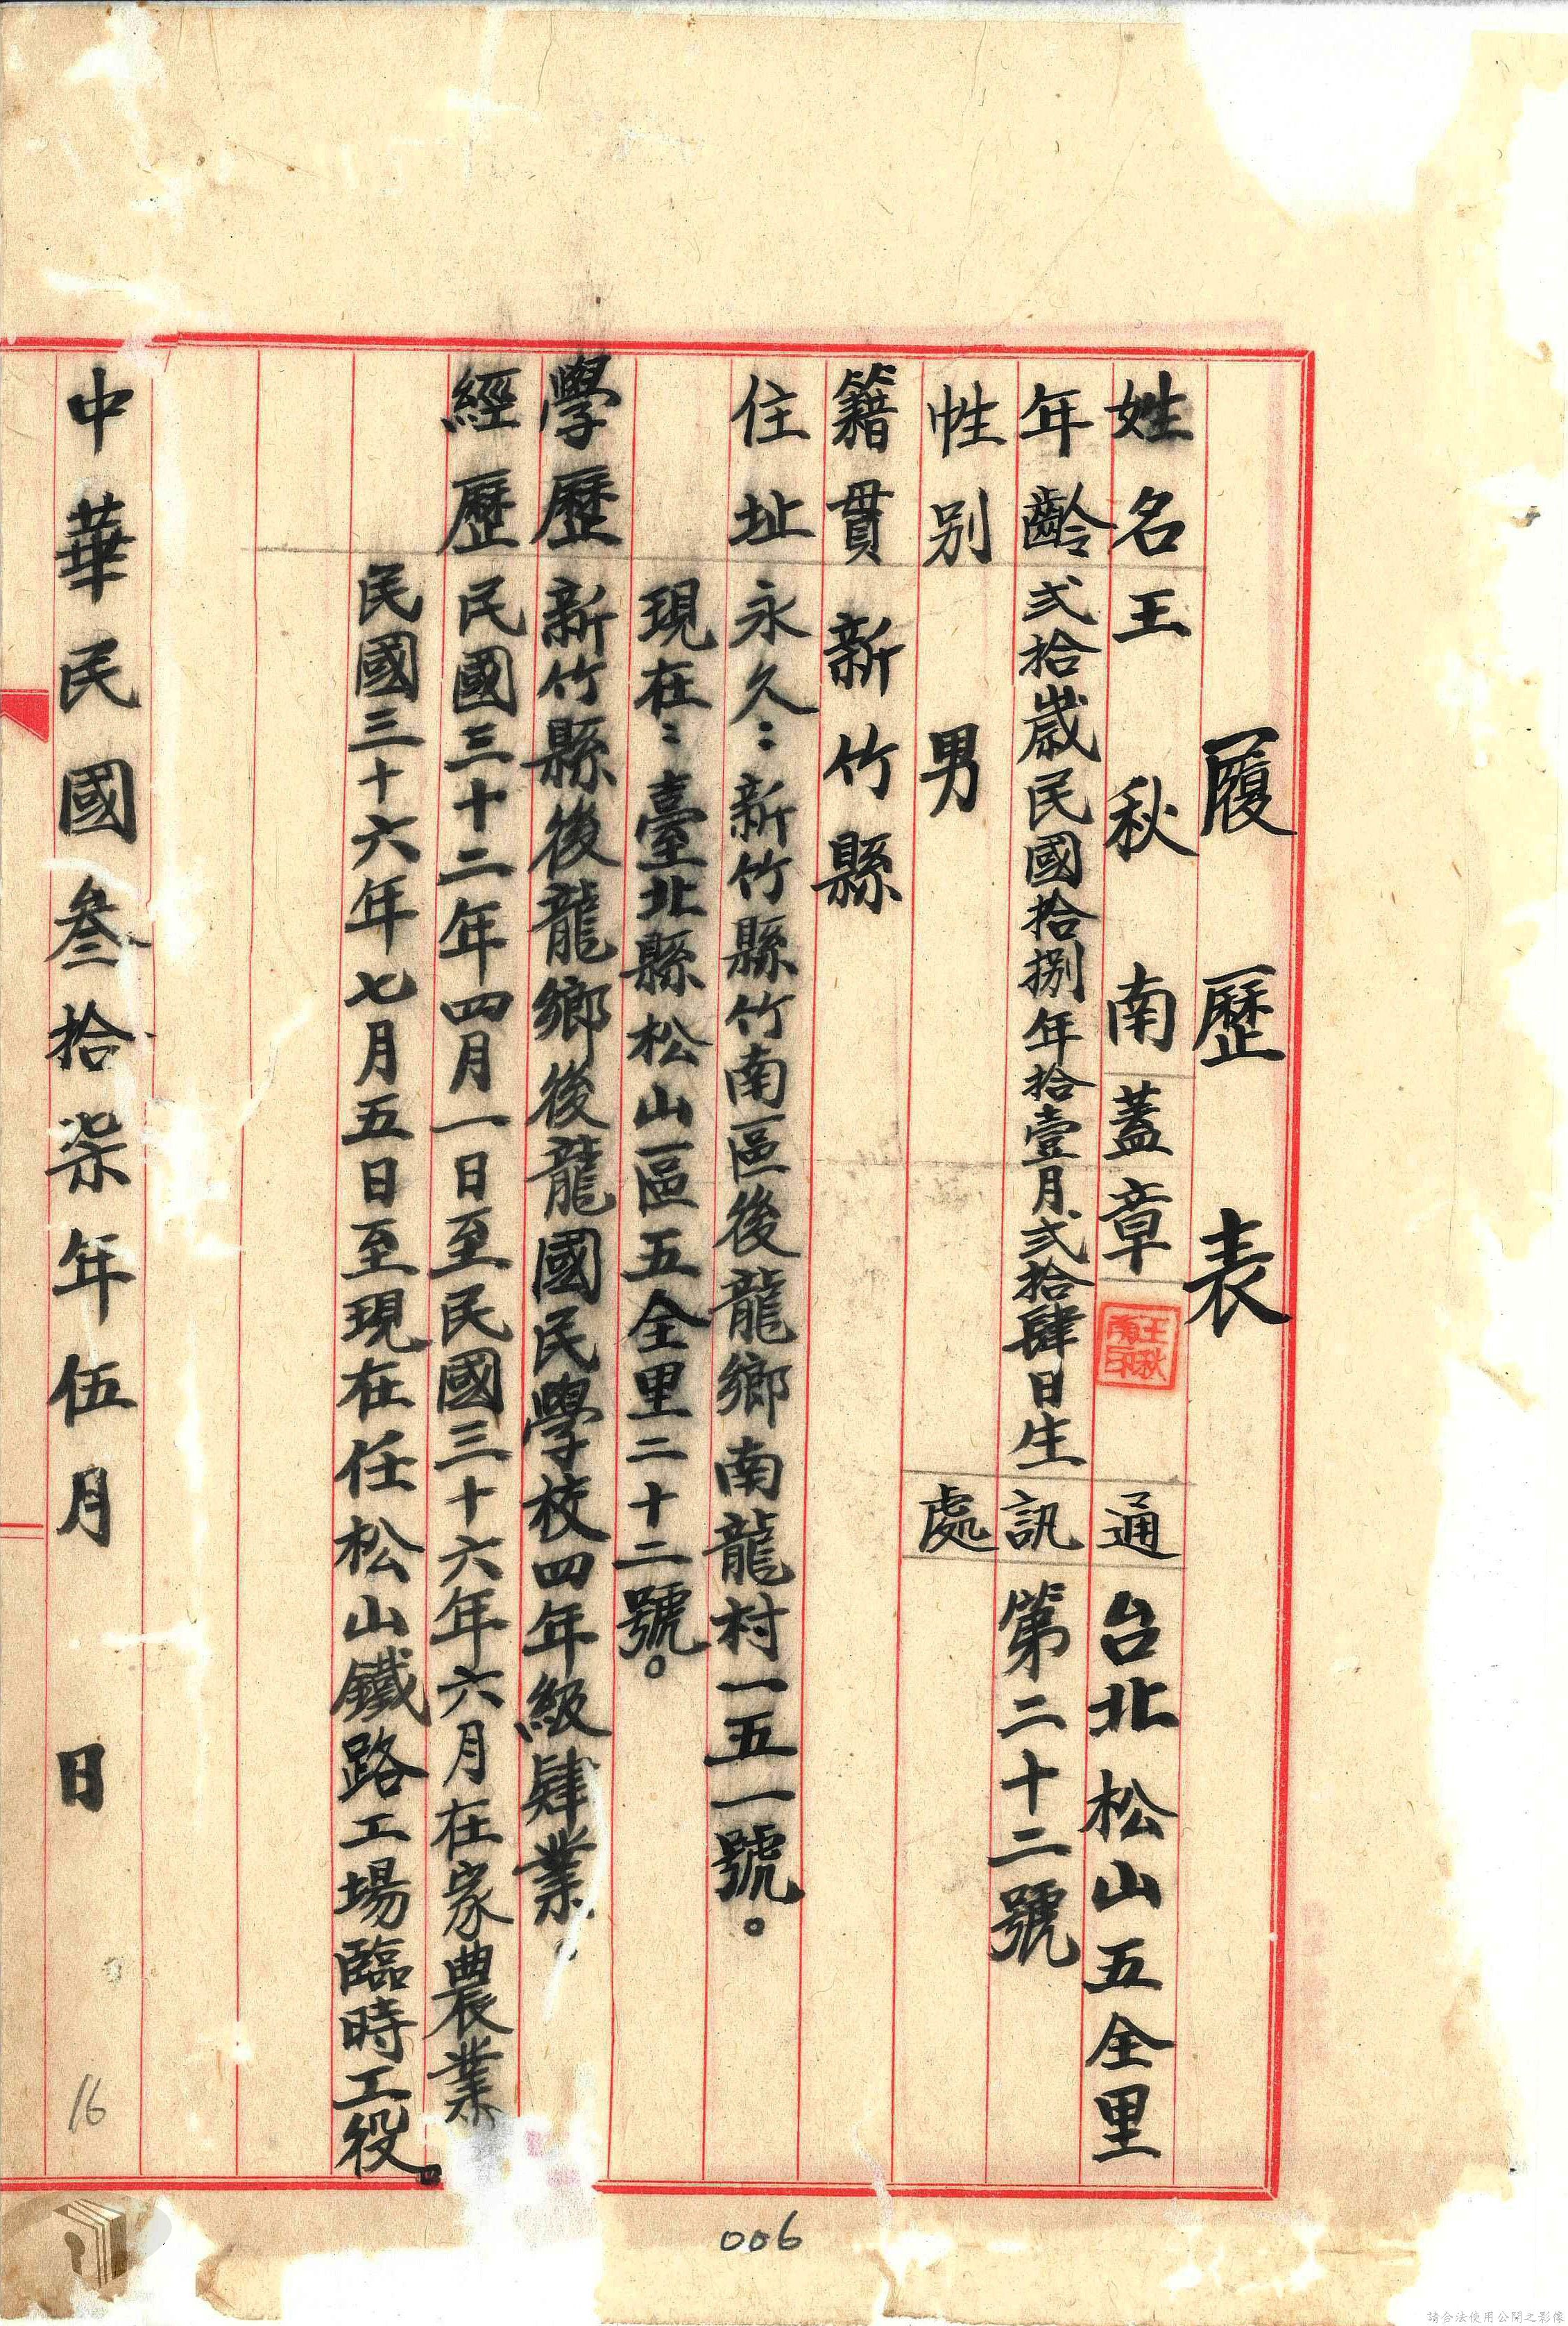 履歷表
姓名 王秋南 蓋章 王秋南印 通 台北松山五全里
年齡 弍拾歲民國拾捌年拾壹月弍拾肆日生 訊 第二十二號
性別 男 處
籍貫 新竹縣
住址 永久:新竹縣竹南區後龍鄉南龍村一五一號。
現在:臺北縣松山區五全里二十二號。
學歷 新竹縣後龍鄉後龍國民學校四年級肄業。
經歷 民國三十二年四月一日至民國三十六年六月在家農業
民國三十六年七月五日至現在任松山鐵路工場臨時工役。
中華民國叁拾柒年伍月 日
16
006
請合法使用公開之影像